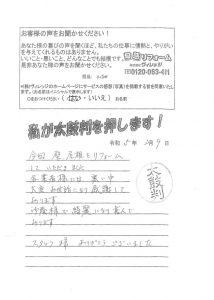 お客様の声をお聞かせください！
あなた様の喜びの声を聞くほど、私たちの仕事に情熱と、やりがいを与えてくれるものはありません。
いいこと・悪いこと、どんなことでも結構です。
是非あなた様の声をお聞かせください。
FREE 0120-083-411
※(株)ヴィレッジのホームページにサービスの感想(写真)を掲載する旨を同意いたします。(お名前はイニシャルで表示します)
○をおつけください（はい・いいえ）お名前
私が太鼓判を押します！
令和5年 月9日
今回 屋根をリフォーム
して いただきました
各業者様には 暑い中
大変 お世話になり 感謝して
おります
お陰様で 綺麗になり喜んで
おります
スタッフ様 ありがとうございました
太鼓判